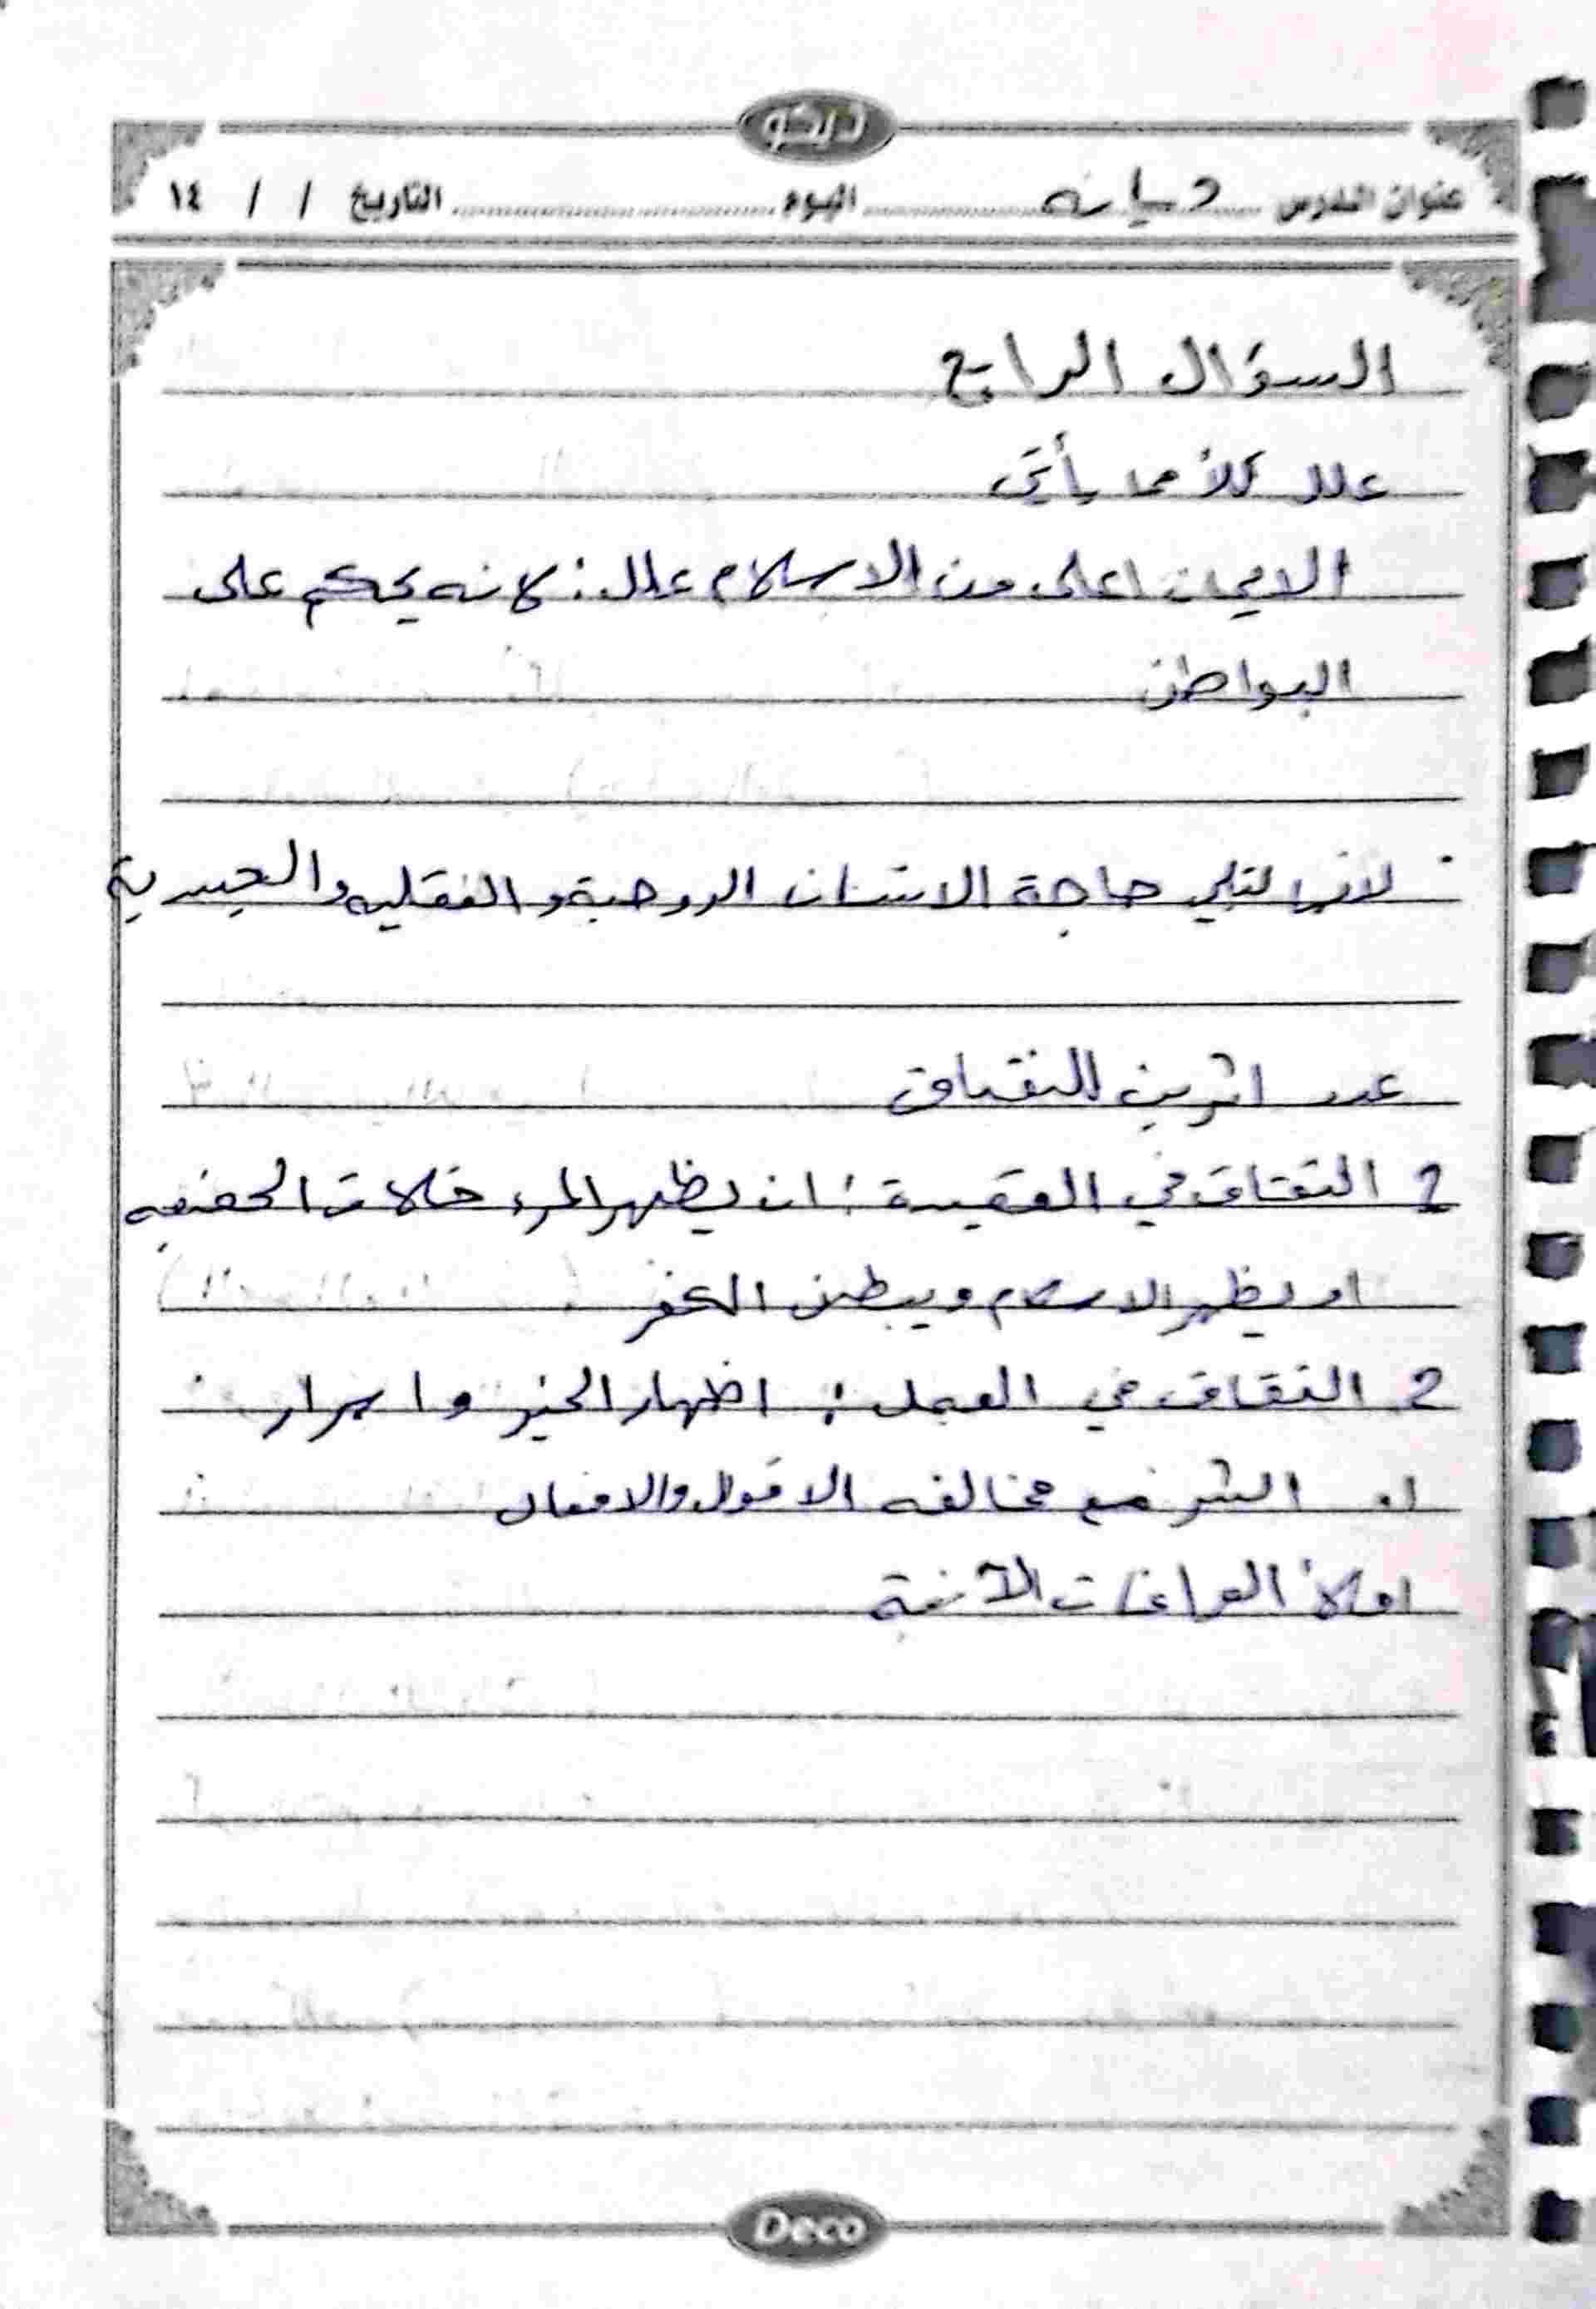 ديكو
عنوان الدرس ديانه اليوم التاريخ / / ١٤
السؤال الرابع
علل كلاً مما يأتي
الايمان اعلى من الاسلام علل : لانه يحكم على
البواطن
لانها لتلبي حاجة الانسان الروحية و العقليه والجسدية
عدد اثرين للنفاق
1 النفاق في العقيدة : ان يظهر المرء خلاف الحقيقه
او يظهر الاسلام ويبطن الكفر
2 النفاق في العمل : اظهار الخير و اسرار
الشر مع مخالفه الاقوال والافعال
املأ الفراغات الآتية
Deco